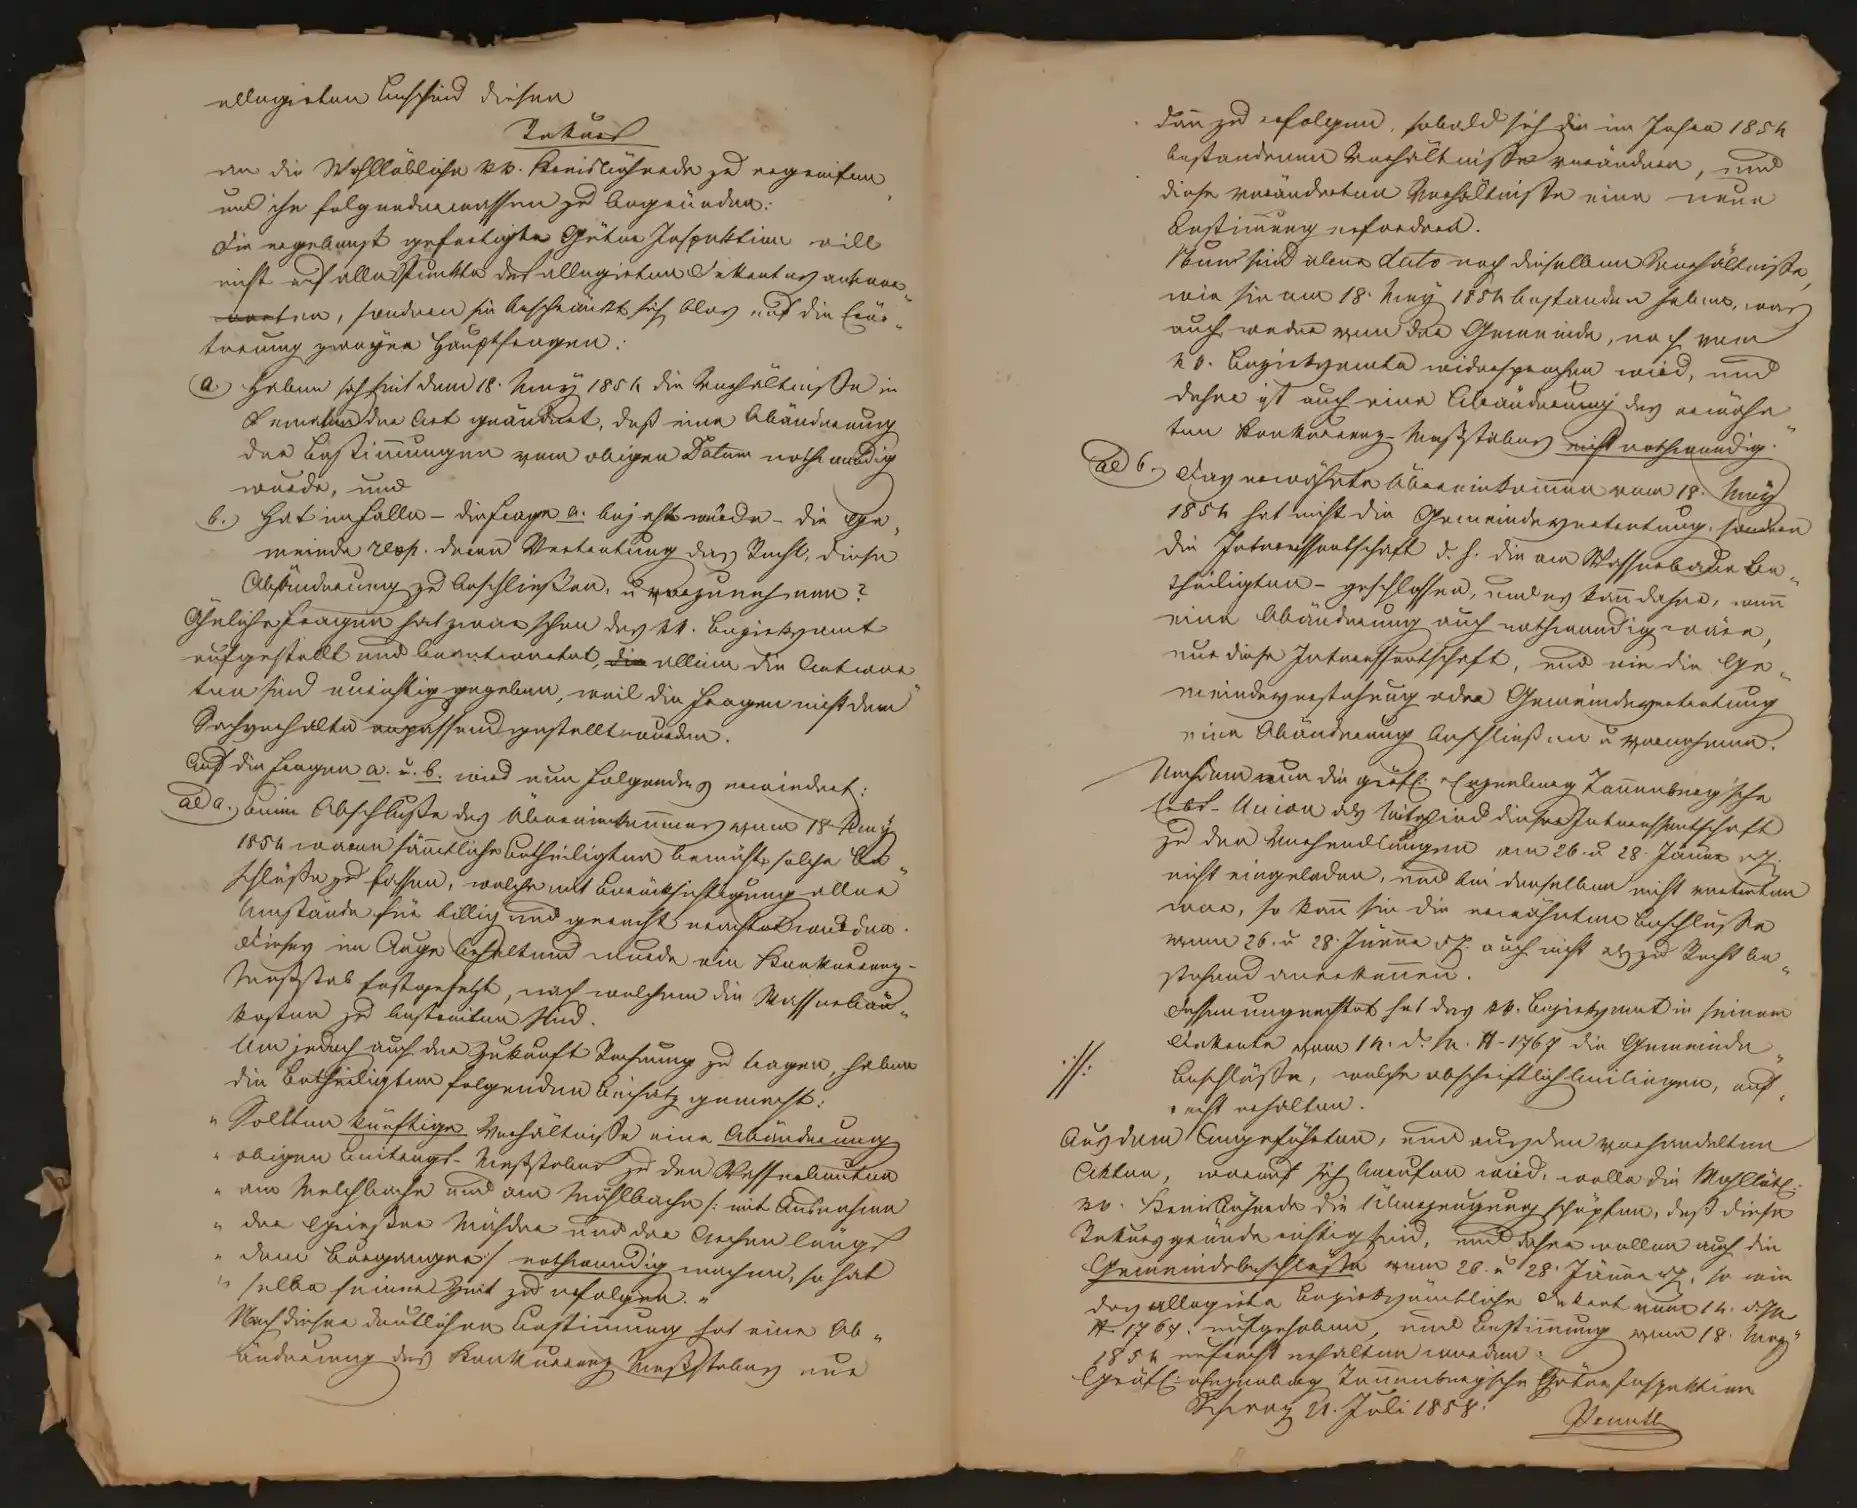 allegirten Bescheid diesen
Rekurs
an die Wohllöbliche kk. Kreisbehörde zu ergreifen
und ihn folgendermassen zu begründen:
Die ergebenst gefertigte Güter Inspektion will
nicht auf alle Punkte des allegirten Dekretes antwor„
ten, sondern sie beschränkt sich blos auf die Erör„
terung zweyer Hauptfragen:
a.) Haben sich seit dem 18. May 1854 die Verhältniße in
der Art geändert, daß eine Abänderung
der Bestimmungen vom obigen Datum nothwendig
wurde, und
b.) Hat im Falle – die Frage a. bejaht würde – die Ge„
meinde resp. deren Vertretung das Recht, diese
Abänderung zu beschließen, u vorzunehmen?
Ähnliche Fragen hat zwar schon das kk. Bezirksamt
aufgestellt und beantwortet, die allein die Antwor„
ten sind unrichtig gegeben, weil die Fragen nicht dem
Sachverhalte anpassend gestellt wurden.
Auf die Fragen a. u. b. wird nun Folgendes erwiedert:
ad a.) Beim Abschluße des Übereinkommens vom 18. May
1854 waren sämmtliche Betheiligten bemüht solche Be„
schlüße zu fassen, welche mit Berücksichtigung aller
Umstände für billig und gerecht erachtet wurden.
Dieses im Auge behaltend wurde ein Konkurrenz-
Maßstab festgesetzt, nach welchem die Wasserbau„
kosten zu bestreiten sind.
Um jedoch auch der Zukunft Rechnung zu tragen, haben
die Betheiligten folgenden Beisatz gemacht:
„ Sollten künftige Verhältniße eine Abänderung
„ obigen Beitrags-Maßstabes zu den Wasserbauten
„ am Melchbache und am Mühlbache /: mit Ausnahme
„ der Gießen Mähder und der Archen längs
„ dem Burganger :/ nothwendig machen, so hat
„ selbe seiner Zeit zu erfolgen. „
Nach dieser deutlichen Bestimmung hat eine Ab„
änderung des Konkurrenz Maßstabes nur
dann zu erfolgen, sobald sich die im Jahre 1854
bestandenen Verhältniße verändern, und
diese veränderten Verhältniße eine neue
Bestimmung erfordern.
Nun sind aber dato noch dieselben Verhältniße,
wie sie am 18. May 1854 bestanden haben, was
auch weder von der Gemeinde, noch vom
kk. Bezirksamte widersprochen wird, und
daher ist auch eine Abänderung des erwähn
ten Konkurrenz-Maßstabes nicht nothwendig.
ad b.) Das erwähnte Übereinkommen vom 18. May
1854 hat nicht die Gemeindevertretung, sondern
die Interessentschaft d. h. die am Wasserbaue be„
theiligten – geschlossen, und es kann daher, wenn
eine Abänderung auch nothwendig wäre,
nur diese Interessentschaft, und nie die Ge„
meindevorstehung oder Gemeindevertretung
eine Abänderung beschließen u vornehmen.
Nachdem nun die gräfl: Enzenberg Tannenberg'sche
als Mitglied dieser Interessentschaft
zu den Verhandlungen am 26. u 28. Jänner
nicht eingeladen, und bei denselben nicht vertreten
war, so kann sie die erwähnten Beschlüße
vom 26. u 28. Jänner auch nicht als zu Recht be„
stehend anerkennen.
Dessenungeachtet hat das kk. Bezirksamt in seinem
Dekrete vom 14. d. M. N. 1767 die Gemeinde„
beschlüße, welche abschriftlich beiliegen, auf„
recht erhalten.
Aus dem Angeführten, und aus den verhandelten
Akten, worauf sich berufen wird, wolle die Wohllöbl:
kk. Kreisbehörde die Überzeugung schöpfen, daß diese
Rekursgründe richtig sind, und daher wollen auch die
Gemeindebeschlüße vom 26. u 28. Jänner, so wie
das allegirte bezirksämtliche Dekret vom 14. d. M.
N. 1767. aufgehoben, und Bestimmung vom 18. May
1854 aufrecht erhalten werden.
Gräfl: Enzenberg Tannenbergsche Güter Inspektion
Schwaz 21. Juli 1858.